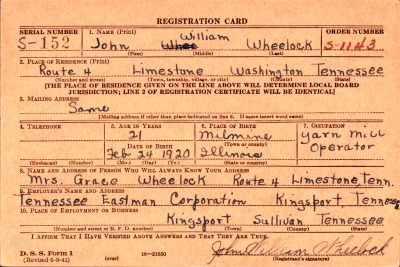 REGISTRATION CARD
SERIAL NUMBER 1. NAME (Print) ORDER NUMBER
William
S-152 John Whee Wheelock S-1143
(First) (Middle) (Last)
2. PLACE OF RESIDENCE (Print)
Route 4 Limestone Washington Tennessee
(Number and street) (Town, township, village, or city) (County) (State)
[THE PLACE OF RESIDENCE GIVEN ON THE LINE ABOVE WILL DETERMINE LOCAL BOARD
JURISDICTION; LINE 2 OF REGISTRATION CERTIFICATE WILL BE IDENTICAL]
3. MAILING ADDRESS
Same
[Mailing address if other than place indicated on line 2. If same insert word same]
4. TELEPHONE 5. AGE IN YEARS 6. PLACE OF BIRTH 7. OCCUPATION
21 Milmine yarn mill
DATE OF BIRTH (Town or county) Operator
Feb 24 1920 Illinois
(Exchange) (Number) (Mo.) (Day) (Yr.) (State or country)
8. NAME AND ADDRESS OF PERSON WHO WILL ALWAYS KNOW YOUR ADDRESS
Mrs. Grace Wheelock Route 4 Limestone, Tenn.
9. EMPLOYER'S NAME AND ADDRESS
Tennessee Eastman Corporation Kingsport, Tennessee
10. PLACE OF EMPLOYMENT OR BUSINESS
Kingsport Sullivan Tennessee
(Number and street or R. F. D. number) (Town) (County) (State)
I AFFIRM THAT I HAVE VERIFIED ABOVE ANSWERS AND THAT THEY ARE TRUE.
John William Wheelock
D. S. S. Form 1 (over) 16—21630 (Registrant's signature)
(Revised 6-9-41)